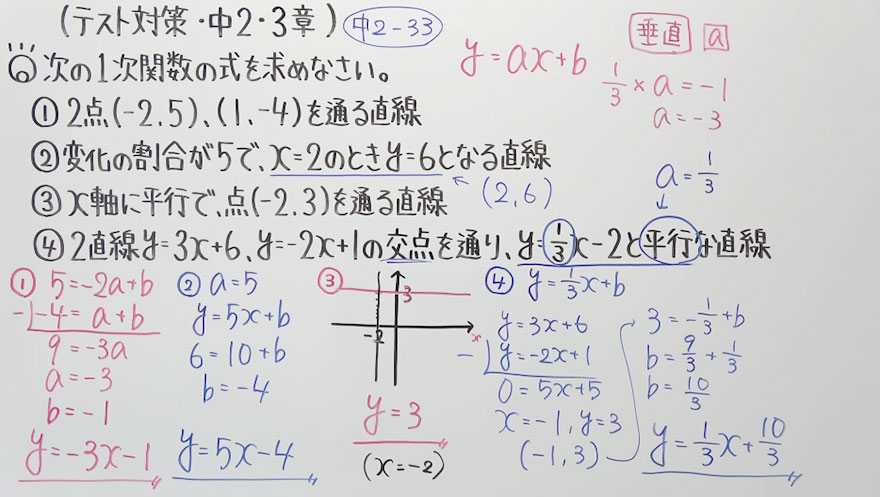 (テスト対策・中2・3章) 中2-33
次の1次関数の式を求めなさい。
y=ax+b
垂直 a
1/3×a=-1
a=-3
①2点(-2.5)、(1.-4)を通る直線
②変化の割合が5で、x=2のときy=6となる直線
(2,6)
③x軸に平行で、点(-2.3)を通る直線
a=1/3
④2直線y=3x+6、y=-2x+1の交点を通り、y=1/3x-2と平行な直線
① 5=-2a+b
-) -4=a+b
9=-3a
a=-3
b=-1
y=-3x-1
② a=5
y=5x+b
6=10+b
b=-4
y=5x-4
③
3
-2
x
y=3
(x=-2)
④ y=1/3x+b
y=3x+6
-) y=-2x+1
0=5x+5
x=-1,y=3
(-1,3)
3=-1/3+b
b=9/3+1/3
b=10/3
y=1/3x+10/3